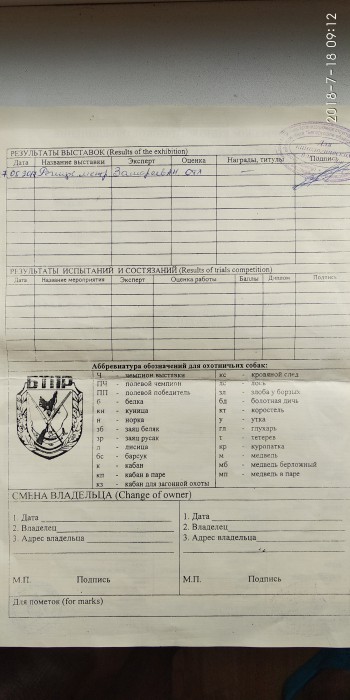 2018-7-18 09:12
РЕЗУЛЬТАТЫ ВЫСТАВОК (Results of the exhibition)
Дата Название выставки Эксперт Оценка Награды, титулы Подпись
РЕЗУЛЬТАТЫ ИСПЫТАНИЙ И СОСТЯЗАНИЙ (Results of trials competition)
Дата Название мероприятия Эксперт Оценка работы Баллы Диплом Подпись
Аббревиатура обозначений для охотничьих собак:
Ч - чемпион выставки
ПЧ - полевой чемпион
ПП - полевой победитель
б - белка
кн - куница
н - норка
зб - заяц беляк
зр - заяц русак
л - лисица
бс - барсук
к - кабан
кп - кабан в паре
кз - кабан для загонной охоты
кс - кровяной след
лс - лось
зл - злоба у борзых
бд - болотная дичь
кт - коростель
у - утка
гл - глухарь
т - тетерев
кр - куропатка
м - медведь
мб - медведь берложный
мп - медведь в паре
БТПР
СМЕНА ВЛАДЕЛЬЦА (Change of owner)
1. Дата
2. Владелец
3. Адрес владельца
М.П. Подпись
1. Дата
2. Владелец
3. Адрес владельца
М.П. Подпись
Для пометок (for marks)